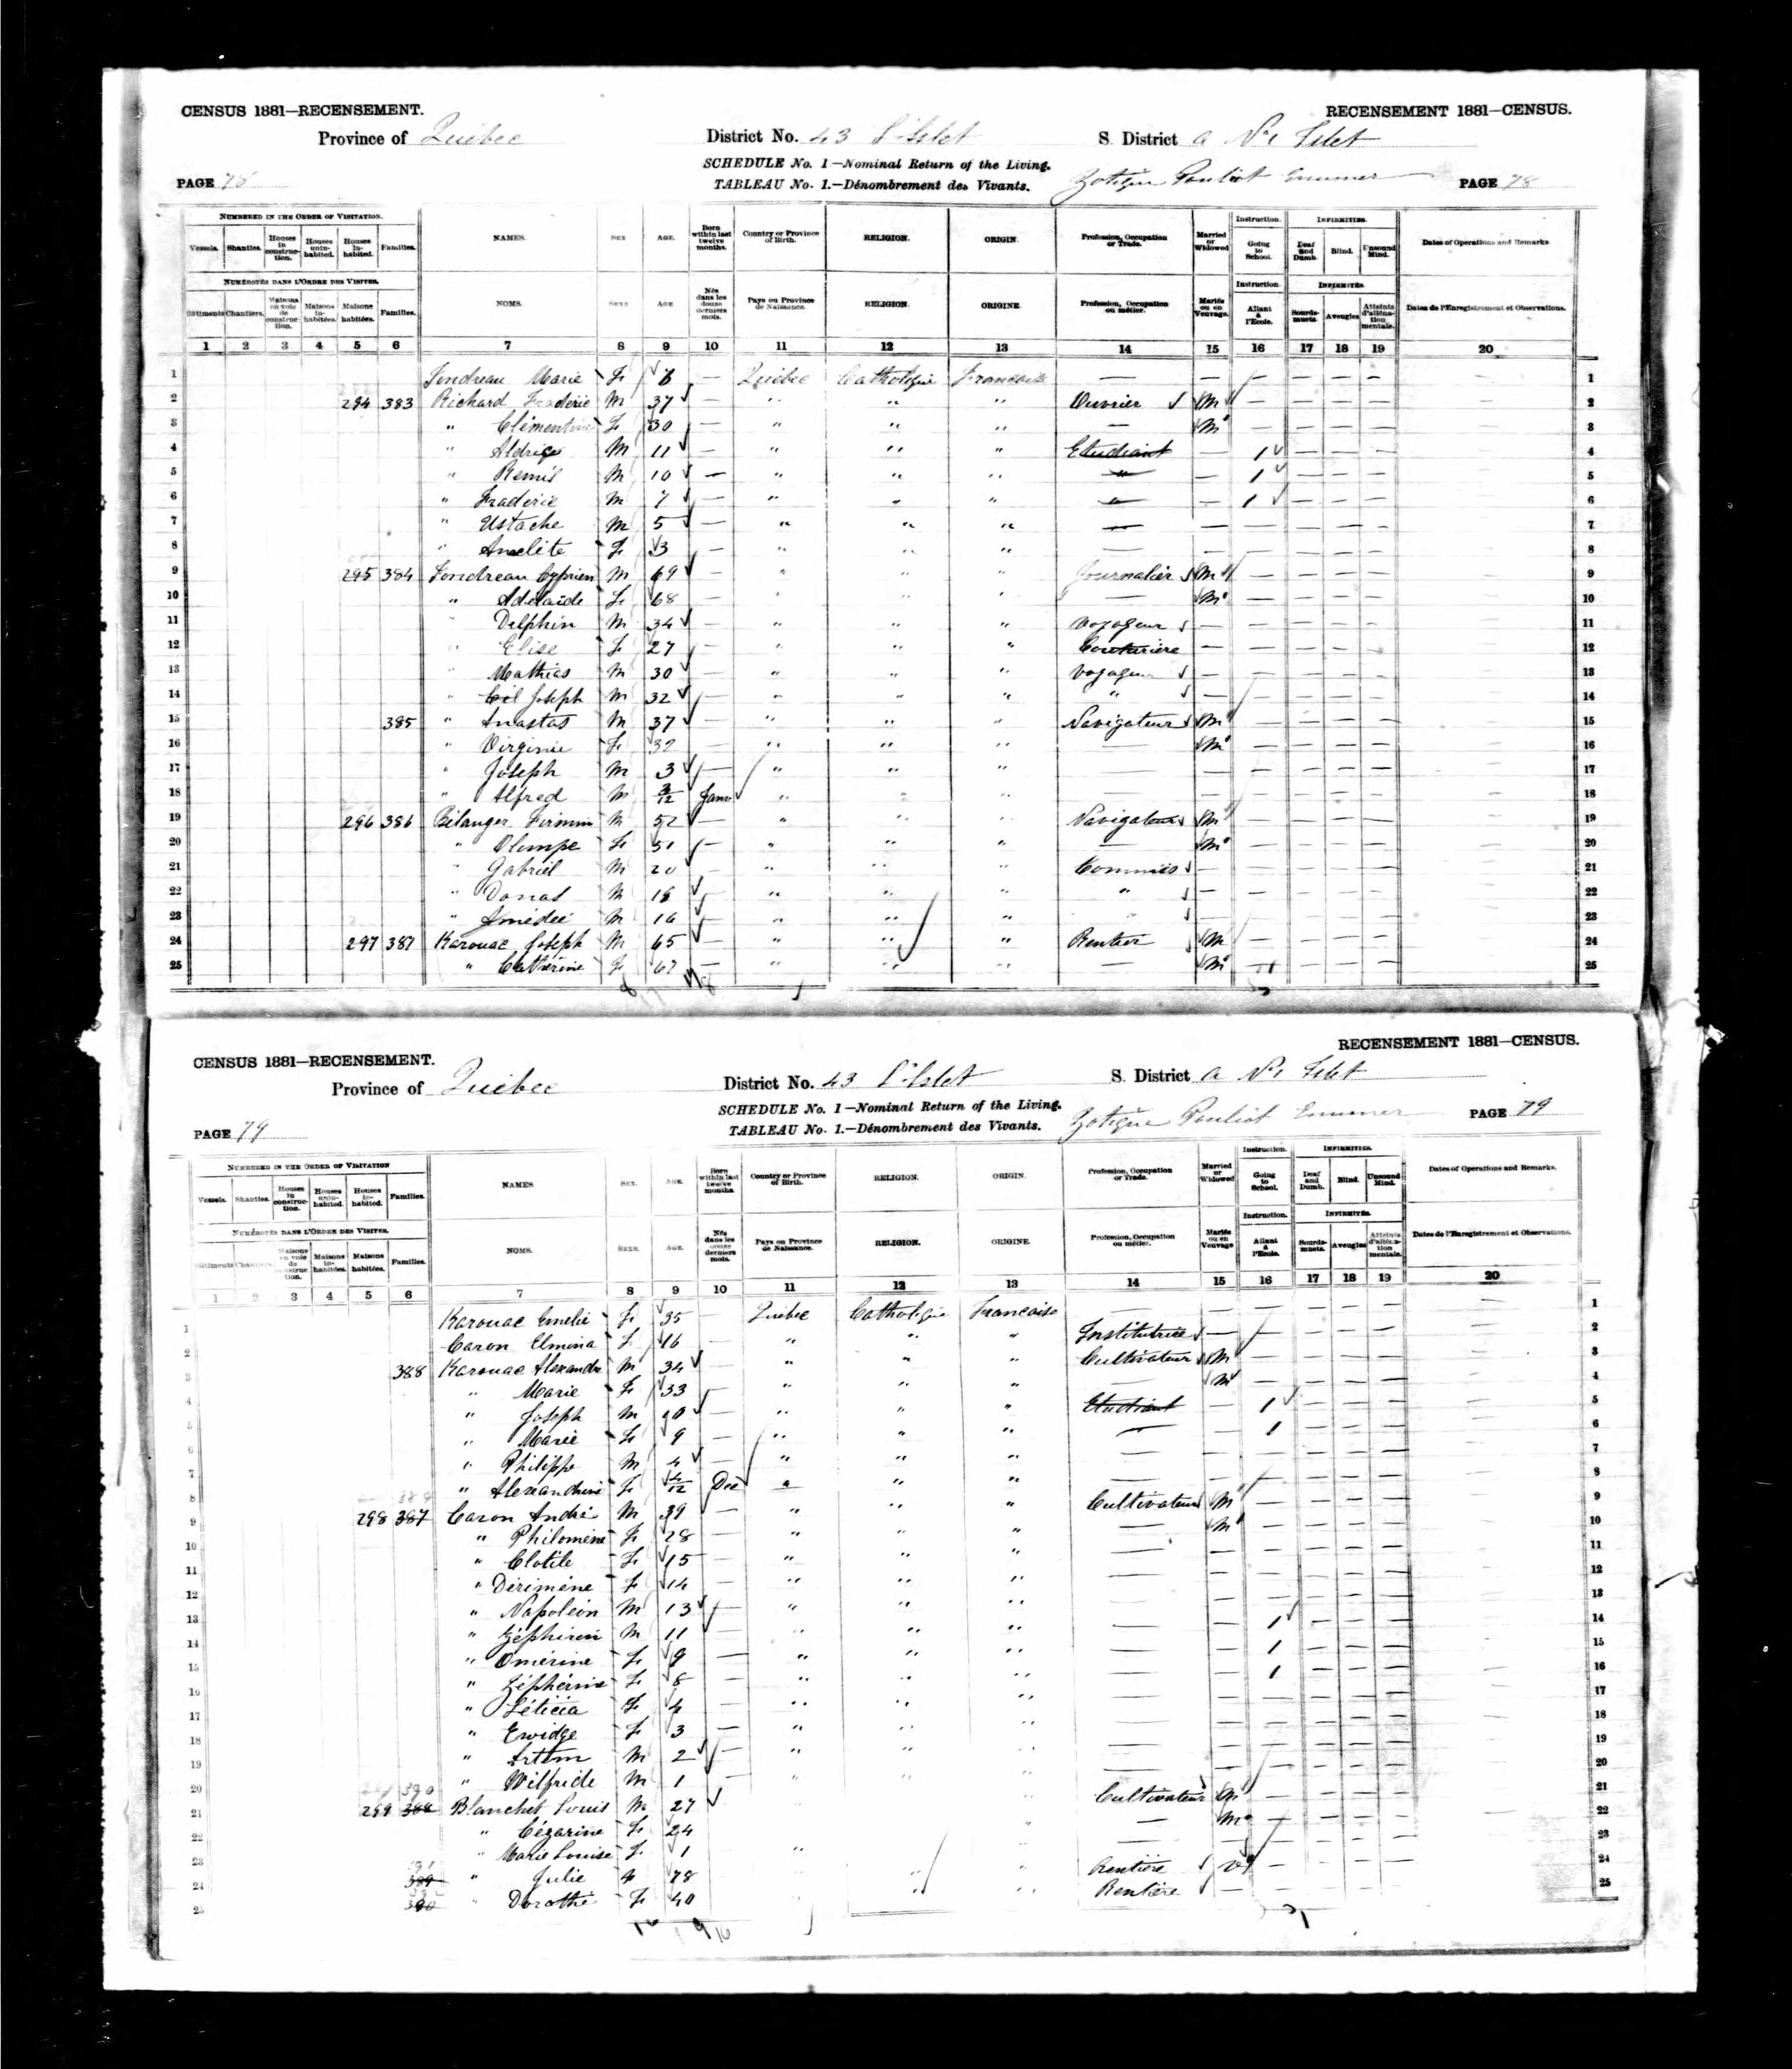 CENSUS 1881—RECENSEMENT. RECENSEMENT 1881—CENSUS.
Province of Québec District No. 43 L'Islet S. District a N° 1 Islet
SCHEDULE No. 1—Nominal Return of the Living.
PAGE 78 TABLEAU No. 1.—Dénombrement des Vivants. Zotique Pouliot Enumer PAGE 78
NUMBERED IN THE ORDER OF VISITATION.
Vessels. Shanties. Houses in construction. Houses uninhabited. Houses inhabited. Families. NAMES. SEX AGE. Born within last twelve months. Country or Province of Birth. RELIGION. ORIGIN. Profession, Occupation or Trade. Married or Widowed Instruction. Going to School. INFIRMITIES. Deaf and Dumb. Blind. Unsound Mind. Dates of Operations and Remarks.
NUMÉROTÉS DANS L'ORDRE DES VISITES.
Bâtiments Chantiers. Maisons en voie de construction. Maisons inhabitées. Maisons habitées. Familles. NOMS. SEXE AGE Nés dans les douze derniers mois. Pays ou Province de Naissance. RELIGION. ORIGINE. Profession, Occupation ou métier. Mariés ou en Veuvage. Instruction. Allant à l'Ecole. INFIRMITÉS. Sourds-muets. Aveugles Atteints d'aliénation mentale. Dates de l'Enregistrement et Observations.
1 2 3 4 5 6 7 8 9 10 11 12 13 14 15 16 17 18 19 20
1 Fondreau Marie F 6 — Québec Catholique Francaise — — — — — — 1
2 294 383 Richard Fraderic M 37 — " " " Ouvrier M — — — — 2
3 " Clémentine F 30 — " " " — M — — — — 3
4 " Aldrige M 11 — " " " Etudiant — 1 — — — 4
5 " Remis M 10 — " " " " — 1 — — — 5
6 " Fraderic M 7 — " " " " — 1 — — — 6
7 " Ustache M 5 — " " " — — — — — — 7
8 " Anelite F 3 — " " " — — — — — — 8
9 295 384 Fondreau Cyprien M 69 — " " " Journalier M — — — — 9
10 " Adelaide F 68 — " " " — M — — — — 10
11 " Delphin M 34 — " " " Voyageur — — — — — 11
12 " Elise F 27 — " " " Couturière — — — — — 12
13 " Mathias M 30 — " " " Voyageur — — — — — 13
14 " Joseph M 32 — " " " " — — — — — 14
15 385 " Anastas M 37 — " " " Navigateur M — — — — 15
16 " Virginie F 32 — " " " — M — — — — 16
17 " Joseph M 3 — " " " — — — — — — 17
18 " Alfred M 3/12 Janv " " " — — — — — — 18
19 296 386 Bélanger Firmin M 52 — " " " Navigateur M — — — — 19
20 " Olimpe F 51 — " " " — M — — — — 20
21 " Gabriel M 20 — " " " Commis — — — — — 21
22 " Donat M 18 — " " " " — — — — — 22
23 " Amédée M 16 — " " " " — — — — — 23
24 297 387 Karouac Joseph M 65 — " " " Rentier M — — — — 24
25 " Catherine F 67 — " " " — M — — — — 25
CENSUS 1881—RECENSEMENT. RECENSEMENT 1881—CENSUS.
Province of Québec District No. 43 L'Islet S. District a N° 1 Islet
SCHEDULE No. 1—Nominal Return of the Living.
PAGE 79 TABLEAU No. 1.—Dénombrement des Vivants. Zotique Pouliot Enumer PAGE 79
NUMBERED IN THE ORDER OF VISITATION
Vessels. Shanties. Houses in construction. Houses uninhabited. Houses inhabited. Families. NAMES SEX. AGE. Born within last twelve months. Country or Province of Birth. RELIGION. ORIGIN. Profession, Occupation or Trade. Married or Widowed Instruction. Going to School. INFIRMITIES. Deaf and Dumb. Blind. Unsound Mind. Dates of Operations and Remarks.
NUMÉROTÉS DANS L'ORDRE DES VISITES.
Bâtiments Chantiers. Maisons en voie de construction. Maisons inhabitées. Maisons habitées. Familles. NOMS. SEXE. AGE. Nés dans les douze derniers mois. Pays ou Province de Naissance. RELIGION. ORIGINE. Profession, Occupation ou métier. Mariés ou en Veuvage. Instruction. Allant à l'Ecole. INFIRMITÉS. Sourds-muets. Aveugles Atteints d'aliénation mentale. Dates de l'Enregistrement et Observations.
1 2 3 4 5 6 7 8 9 10 11 12 13 14 15 16 17 18 19 20
1 Karouac Emelie F 35 — Québec Catholique Francaise — — — — — — 1
2 Caron Elmina F 16 — " " " Institutrice — — — — — 2
3 388 Karouac Alexandre M 34 — " " " Cultivateur M — — — — 3
4 " Marie F 33 — " " " — M — — — — 4
5 " Joseph M 10 — " " " Etudiant — 1 — — — 5
6 " Marie F 9 — " " " — 1 — — — 6
7 " Philippe M 4 — " " " — — — — — — 7
8 " Alexandrine F 4/12 Dec " " " — — — — — — 8
9 298 387 Caron André M 39 — " " " Cultivateur M — — — — 9
10 " Philomène F 28 — " " " — M — — — — 10
11 " Clotile F 15 — " " " — — — — — — 11
12 " Dérimène F 14 — " " " — — — — — — 12
13 " Napoléon M 13 — " " " — — — — — — 13
14 " Zéphirin M 11 — " " " — — 1 — — — 14
15 " Omérine F 9 — " " " — — 1 — — — 15
16 " Zéphérine F 8 — " " " — — 1 — — — 16
17 " Léticia F 4 — " " " — — — — — — 17
18 " Ewidge F 3 — " " " — — — — — — 18
19 " M 2 — " " " — — — — — — 19
20 " Wilfride M 1 — " " " — — — — — — 20
21 299 388 390 Blanchet Louis M 27 Cultivateur M — — — — 21
22 " Cézarine F 24 — M — — — — 22
23 " Marie Louise F 1 — — — — — — 23
24 389 " Julie F 78 Rentière V — — — — 24
25 390 " Dorothé F 40 Rentière — — — — — 25